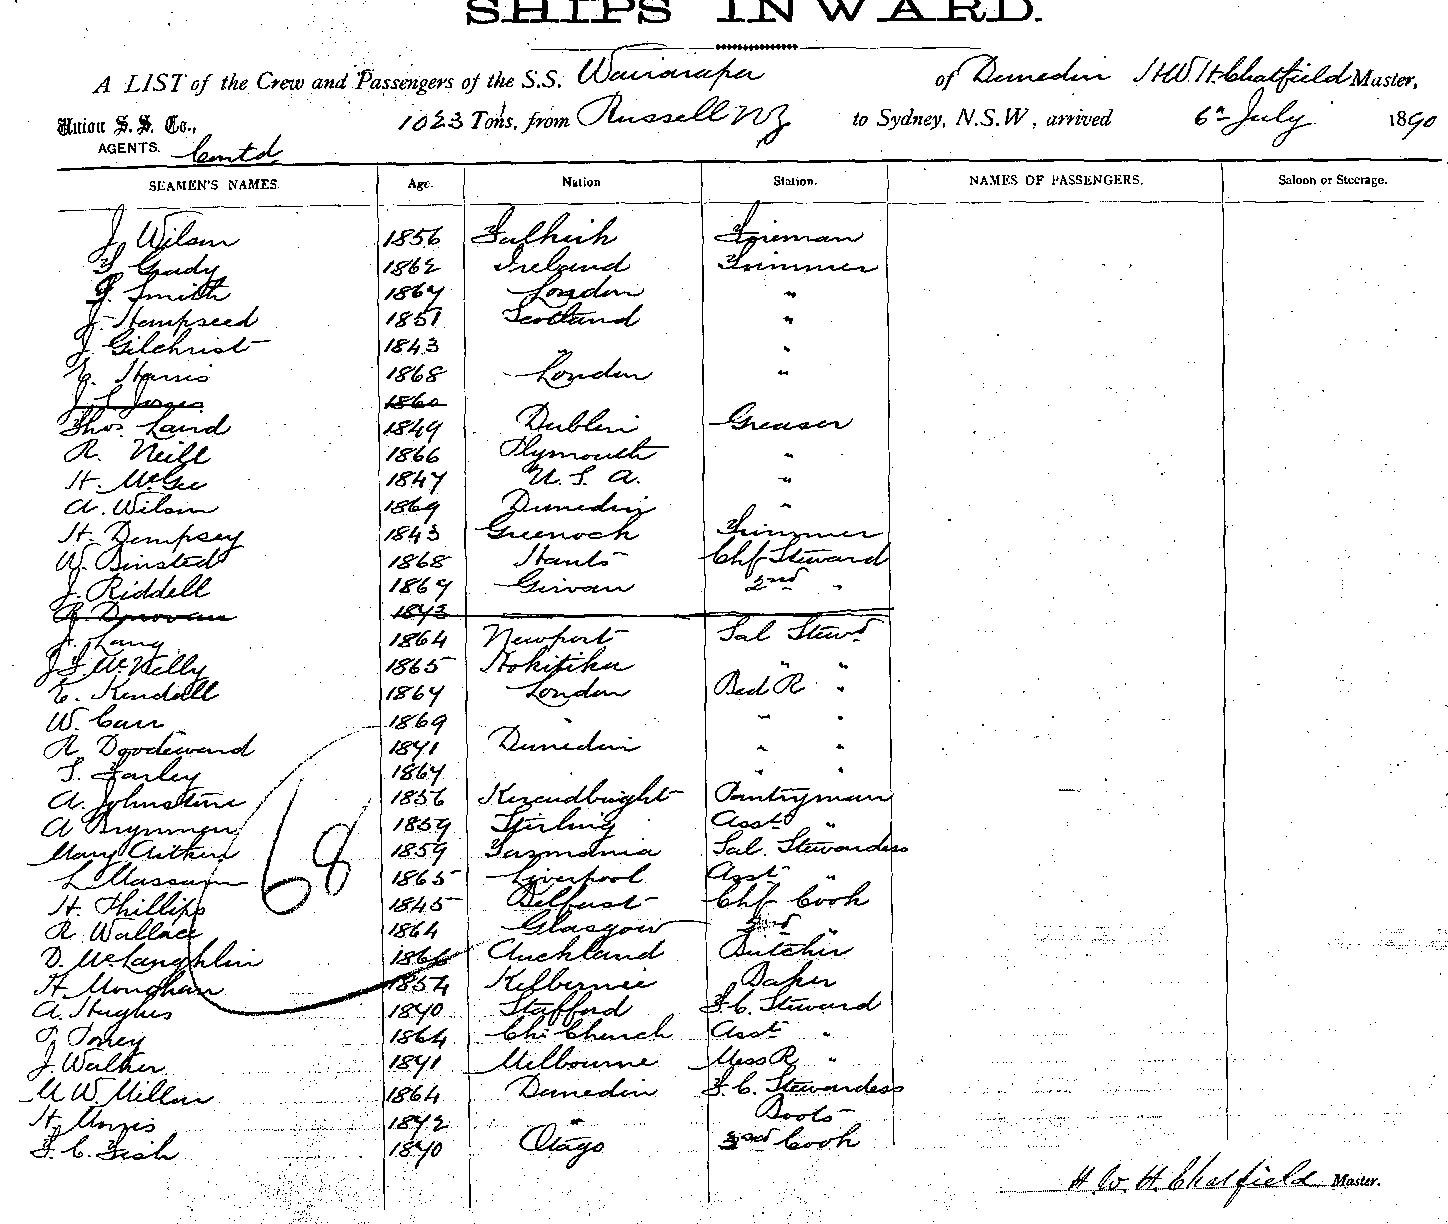 SHIPS INWARD.
A LIST of the Crew and Passengers of the S.S. Wairarapa of Dunedin H W H Chatfield Master,
Union S. S. Co., 1023 Tons, from Russell NZ to Sydney, N.S.W, arrived 6th July 1890
AGENTS. Contd
SEAMEN'S NAMES. Age. Nation Station. NAMES OF PASSENGERS. Saloon or Steerage.
J. Wilson 1856 Falkirk Foreman
Grady 1862 Ireland Trimmer
Smith 1867 London "
J. Hempseed 1851 Scotland "
J. Gilchrist 1843 " "
E. Harris 1868 London "
J. L. Jones 1860
Thos. Laird 1849 Dublin Greaser
R. Neill 1866 Plymouth "
H. McGee 1847 U. S. A. "
A. Wilson 1869 Dunedin "
H. Dempsey 1843 Greenock Trimmer
W. Binsted 1868 Hants Chf Steward
J. Riddell 1869 Girvan 2nd "
R. Donovan 1843
J. Lang 1864 Newport Sal Stewd
J F McNelly 1865 Hokitika " "
E. Kendall 1867 London Bed R "
W. Carr 1869 " " "
R. Doodeward 1871 Dunedin " "
Farley 1867 " "
A. Johnstone 1856 Kircudbright Pantryman
A Brymner 1859 Stirling Asst "
Mary Aitken 1859 Tasmania Sal. Stewardess
L Massam 1865 Liverpool Asst "
H. Phillips 1845 Belfast Chf Cook
R. Wallace 1864 Glasgow 2nd "
D. McLaughlin 1866 Auckland Butcher
H. Monghan 1854 Kelbernie Baker
A. Hughes 1870 Stafford F. C. Steward
Torrey 1864 Ch. Church Asst "
J. Walker 1871 Melbourne Mess R "
M W. Millar 1864 Dunedin F. C. Stewardess
H. Morris 1872 " Boots
F. C. Fish 1870 Otago 3rd Cook
68
H. W. H. Chatfield Master.